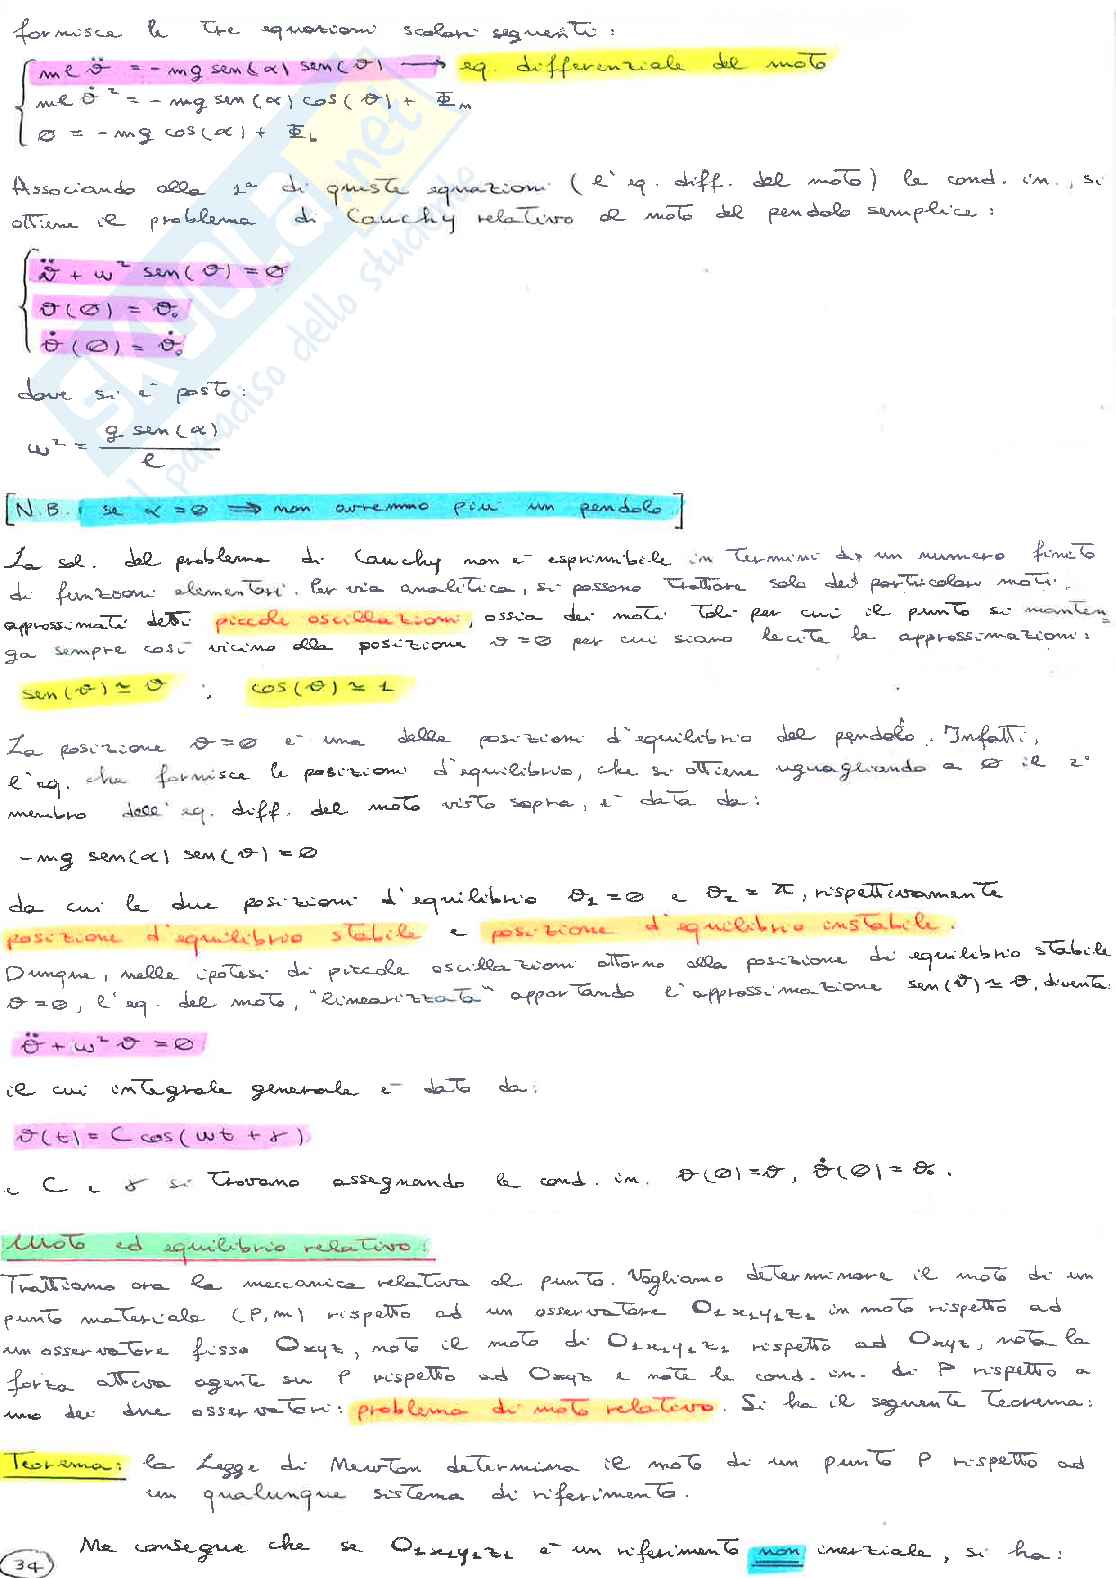 fornisce le tre equazioni scalari seguenti:
mℓϑ̈ = -mg sen(α) sen(ϑ) → eq. differenziale del moto
mℓϑ̇² = -mg sen(α) cos(ϑ) + Φn
∅ = -mg cos(α) + Φb
Associando alla 1ª di queste equazioni (l'eq. diff. del moto) le cond. in., si
ottiene il problema di Cauchy relativo al moto del pendolo semplice:
ϑ̈ + ω² sen(ϑ) = ∅
ϑ(∅) = ϑ₀
ϑ̇(∅) = ϑ̇₀
dove si è posto:
ω² = g sen(α) / ℓ
[N.B.: se α = ∅ ⇒ non avremmo più un pendolo]
La sol. del problema di Cauchy non è esprimibile in termini di un numero finito
di funzioni elementari. Per via analitica, si possono trattare solo dei particolari moti
approssimati detti piccole oscillazioni, ossia dei moti tali per cui il punto si manten=
ga sempre così vicino alla posizione ϑ=∅ per cui siano lecite le approssimazioni:
sen(ϑ) ≃ ϑ ; cos(ϑ) ≃ 1
La posizione ϑ=∅ è una delle posizioni d'equilibrio del pendolo. Infatti,
l'eq. che fornisce le posizioni d'equilibrio, che si ottiene uguagliando a ∅ il 2°
membro dell'eq. diff. del moto visto sopra, è data da:
-mg sen(α) sen(ϑ) = ∅
da cui le due posizioni d'equilibrio ϑ₁=∅ e ϑ₂ = π, rispettivamente
posizione d'equilibrio stabile e posizione d'equilibrio instabile.
Dunque, nelle ipotesi di piccole oscillazioni attorno alla posizione di equilibrio stabile
ϑ=∅, l'eq. del moto, "linearizzata" apportando l'approssimazione sen(ϑ) ≃ ϑ, diventa:
ϑ̈ + ω²ϑ = ∅
il cui integrale generale è dato da:
ϑ(t) = C cos(ωt + γ)
e C e γ si trovano assegnando le cond. in. ϑ(∅)=ϑ, ϑ̇(∅) = ϑ̇₀.
Moto ed equilibrio relativo:
Trattiamo ora la meccanica relativa al punto. Vogliamo determinare il moto di un
punto materiale (P,m) rispetto ad un osservatore O₁x₁y₁z₁ in moto rispetto ad
un osservatore fisso Oxyz, noto il moto di O₁x₁y₁z₁ rispetto ad Oxyz, nota la
forza attiva agente su P rispetto ad Oxyz e note le cond. in. di P rispetto a
uno dei due osservatori: problema di moto relativo. Si ha il seguente teorema:
Teorema: la Legge di Newton determina il moto di un punto P rispetto ad
un qualunque sistema di riferimento.
Ne consegue che se O₁x₁y₁z₁ è un riferimento non inerziale, si ha:
34
SKUOLA.net
il paradiso dello studente